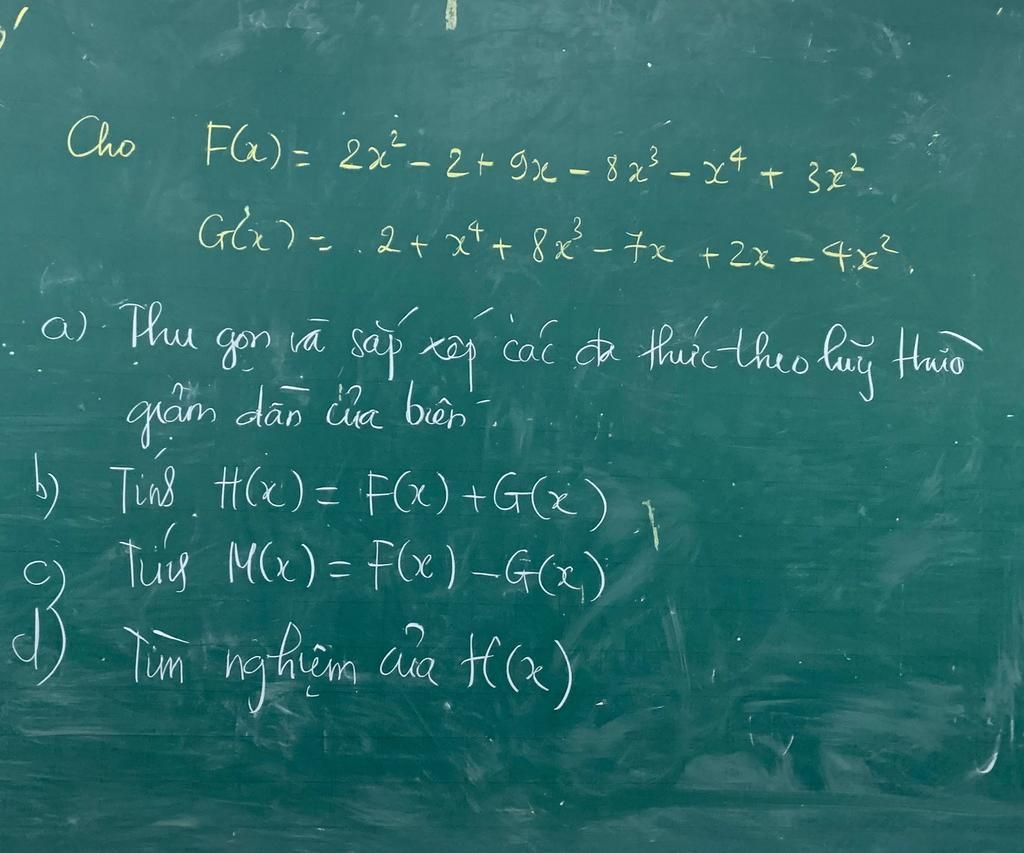 Cho F(x) = 2x² - 2 + 9x - 8x³ - x⁴ + 3x²
G(x) = 2 + x⁴ + 8x³ - 7x + 2x - 4x².
a) Thu gọn và sắp xếp các đa thức theo luỹ thừa
giảm dần của biến.
b) Tính H(x) = F(x) + G(x)
c) Tính M(x) = F(x) - G(x)
d) Tìm nghiệm của H(x)